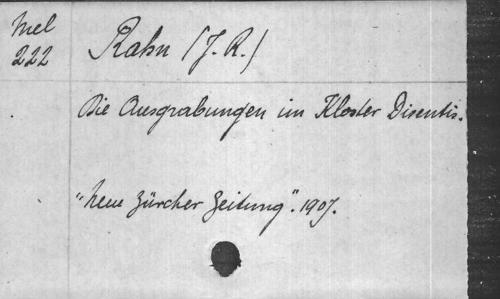 Mel
222
Rahn (J. R.)
Die Ausgrabungen im Kloster Disentis.
"Neue Zürcher Zeitung". 1907.